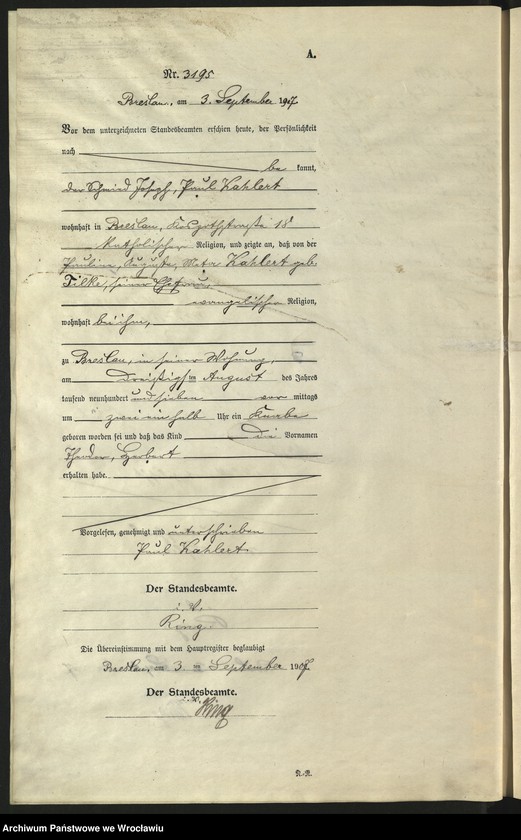 A.
Nr. 3195
Breslau, am 3. September 1907.
Vor dem unterzeichneten Standesbeamten erschien heute, der Persönlichkeit
nach
be kannt,
der Schmied Joseph, Paul Kahlert
wohnhaft in Breslau, 18
katholischer Religion, und zeigte an, daß von der
Pauline, Auguste, Meta Kahlert geb.
Tilke, seiner Ehefrau,
evangelischer Religion,
wohnhaft bei ihm,
zu Breslau, in seiner Wohnung,
am dreißigsten August des Jahres
tausend neunhundert und sieben vor mittags
um zwei ein halb Uhr ein Knabe
geboren worden sei und daß das Kind die Vornamen
Theodor, Herbert
erhalten habe.
Vorgelesen, genehmigt und unterschrieben
Paul Kahlert
Der Standesbeamte.
i. V.
Ring
Die Übereinstimmung mit dem Hauptregister beglaubigt
Breslau, am 3. ten September 1907.
Der Standesbeamte.
i. V. Ring
Archiwum Państwowe we Wrocławiu